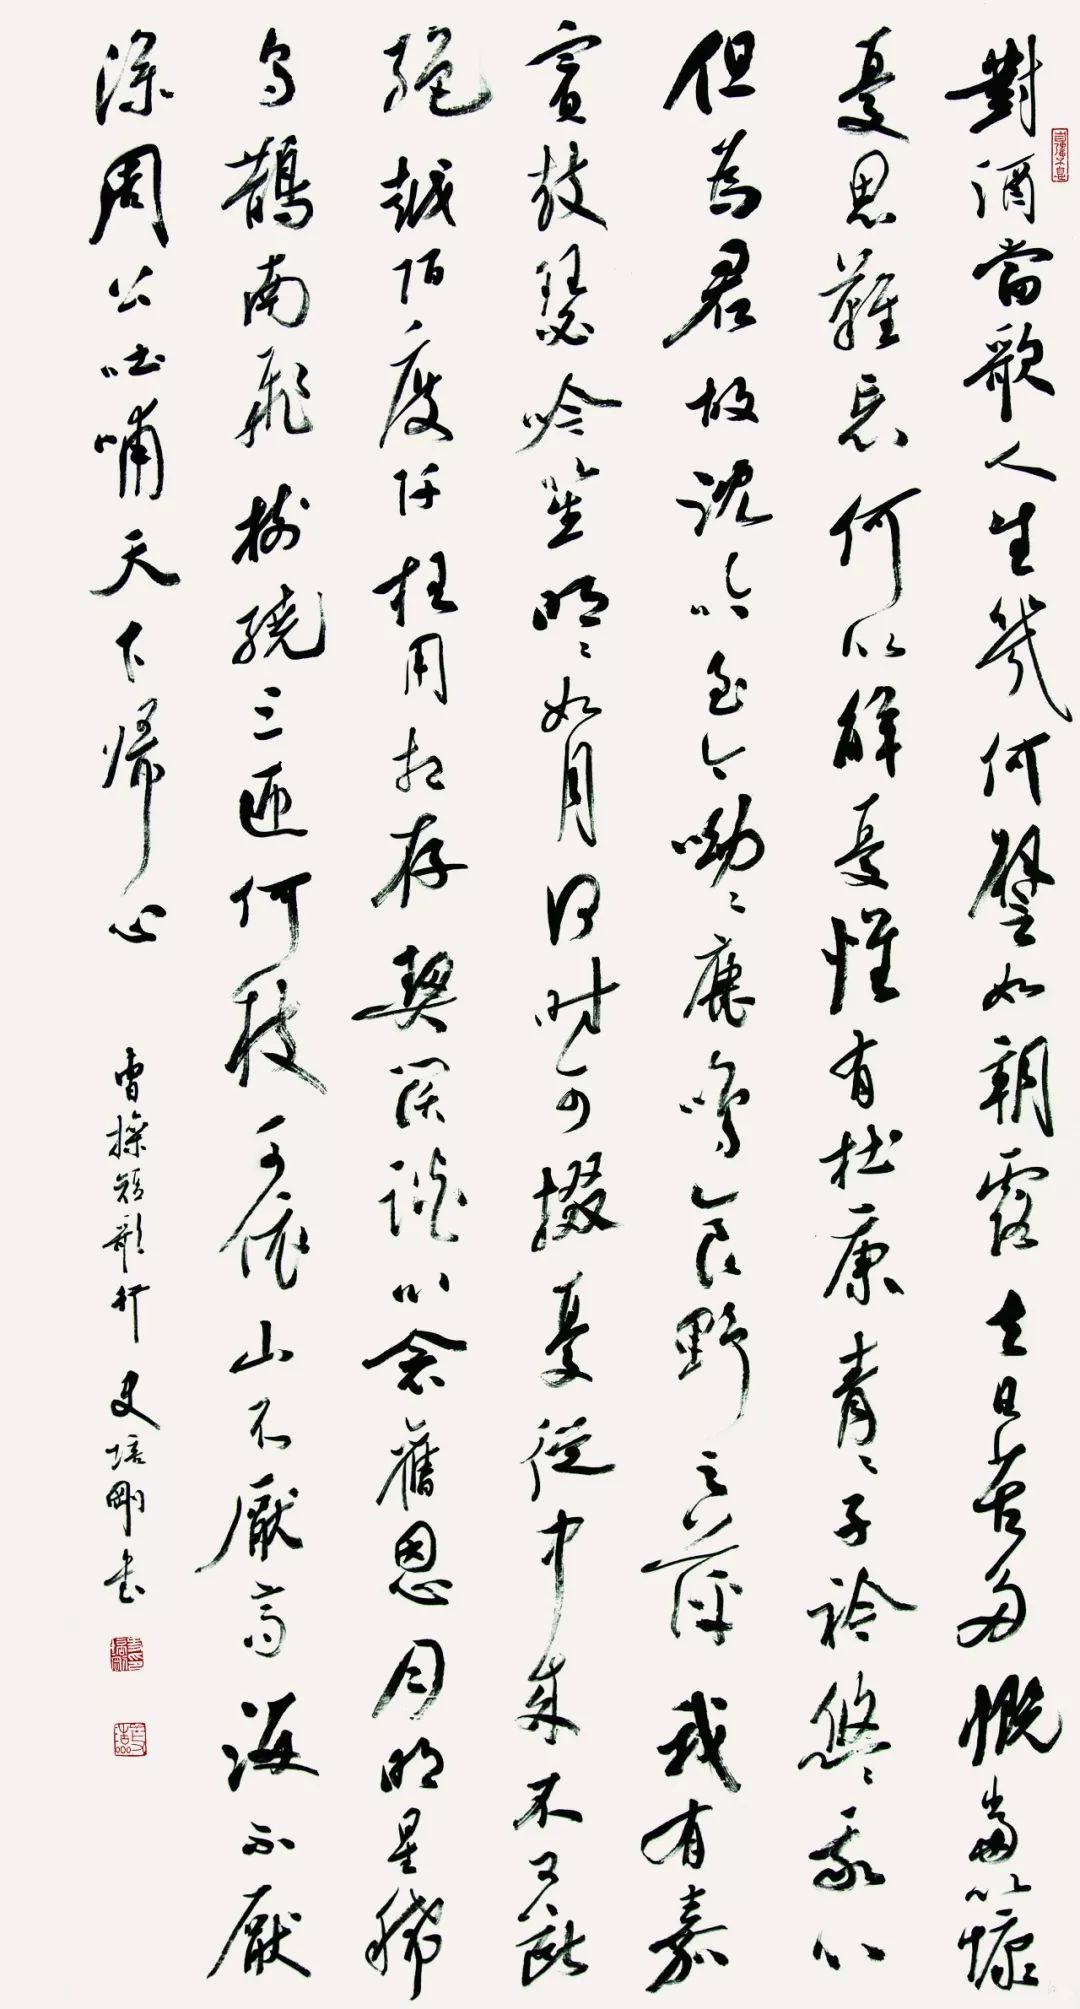 對酒當歌人生幾何譬如朝露去日苦多慨當以慷
憂思難忘何以解憂惟有杜康青〻子衿悠〻我心
但為君故沈吟至今呦〻鹿鳴食野之蘋我有嘉
賓鼓瑟吟笙明〻如月何時可掇憂從中來不可斷
絕越陌度阡枉用相存契闊談心念舊恩月明星稀
烏鵲南飛樹繞三匝何枝可依山不厭高海不厭
深周公吐哺天下歸心 曹操短歌行 史培剛書
自強不息